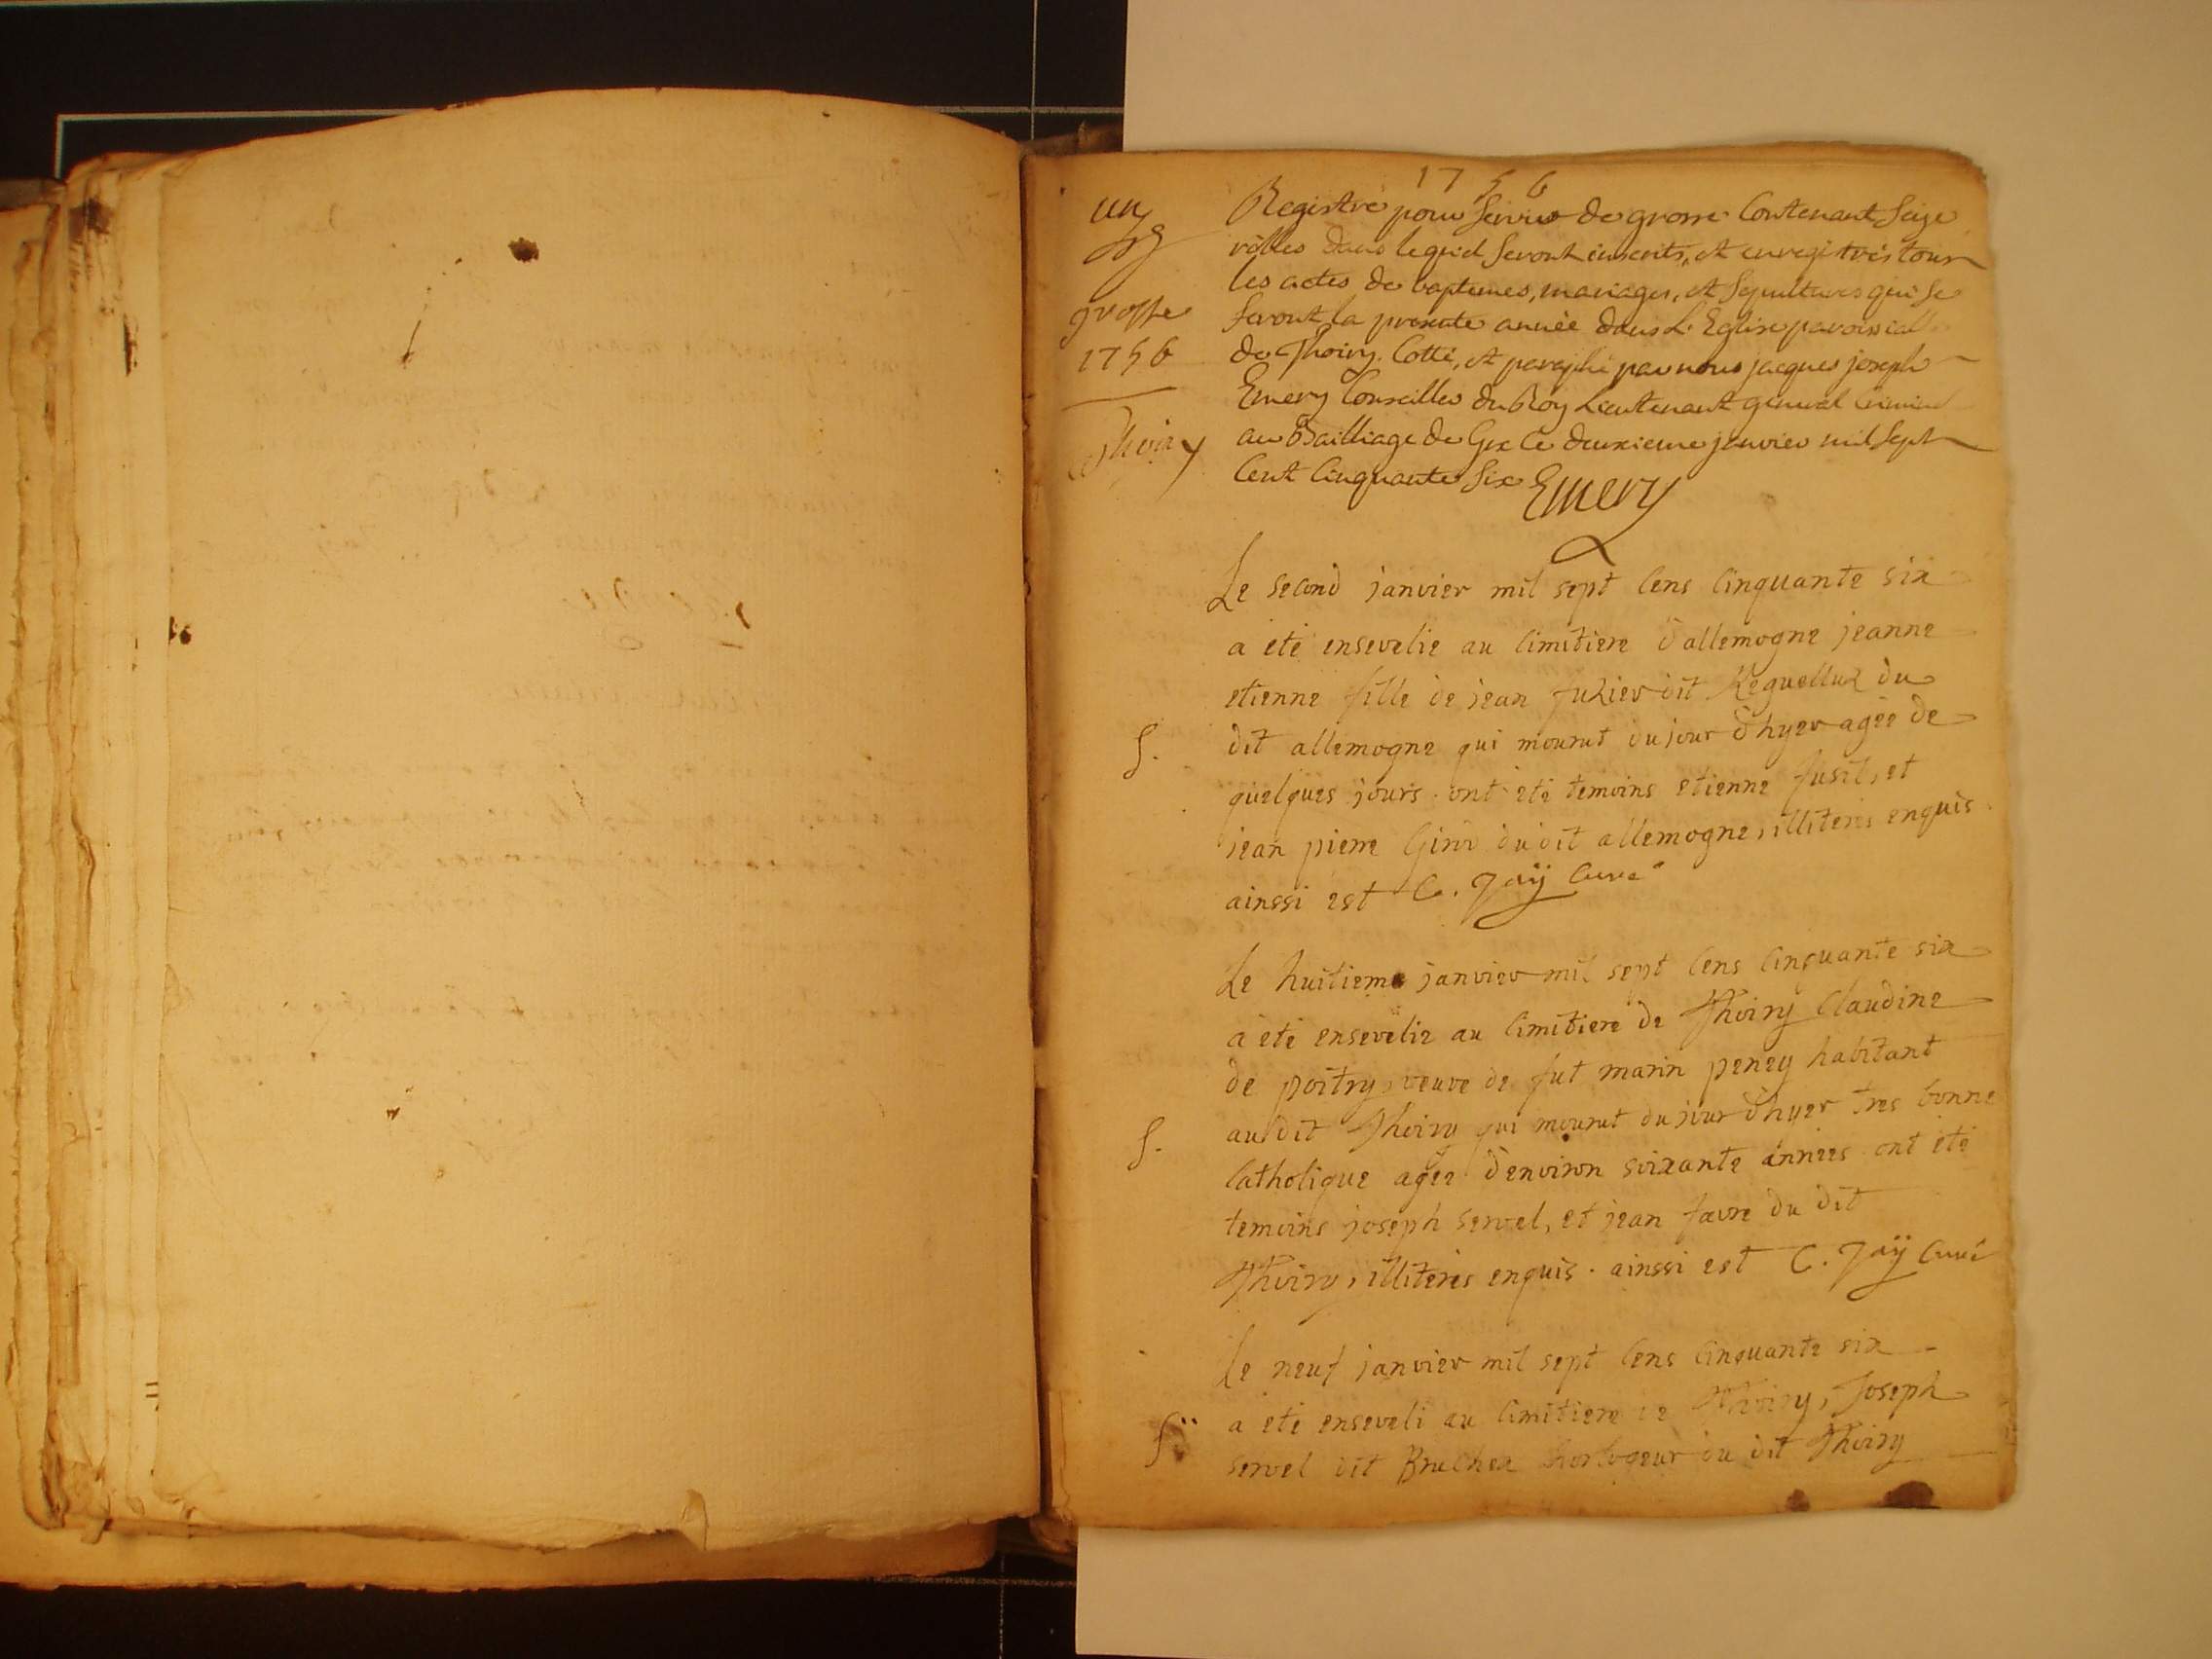 1756
un
grosse
1756
Thoiry
Registre pour servir de grosse Contenant seize
rôlles dans lequel seront inscrits, et enregitrés tous
les actes de baptemes, mariages, et sepultures qui se
feront la presente année dans L'Eglise paroissialle
de Thoiry. Cotté, et paraphé par nous jacques joseph
Emery Conseiller du Roy Lieutenant general Criminel
au Bailliage de Gex le deuxieme janvier mil sept
Cent Cinquante six Emery
Le second janvier mil sept Cens Cinquante six
a eté ensevelie au Cimitiere d'allemogne jeanne
etienne fille de jean dit du
S.
dit allemogne qui mourut du jour d'hyer agée de
quelques jours. ont eté temoins etienne fusil, et
jean pierre Girod du dit allemogne, illiterés enquis
ainssi est C. Jaÿ Curé
Le huitieme janvier mil sept Cens Cinquante six
a eté ensevelie au Cimitiere de Thoiry Claudine
de poitry, veuve de fut marin peney habitant
S.
au dit Thoiry qui mourut du jour d'hyer tres bonne
Catholique agée d'environ soixante années ont eté
temoins joseph servel, et jean favre du dit
Thoiry, illiterés enquis. ainssi est C. Jaÿ Curé
Le neuf janvier mil sept Cens Cinquante six
S.
a eté enseveli au Cimitiere de Thoiry, Joseph
servel dit horlogeur du dit Thoiry